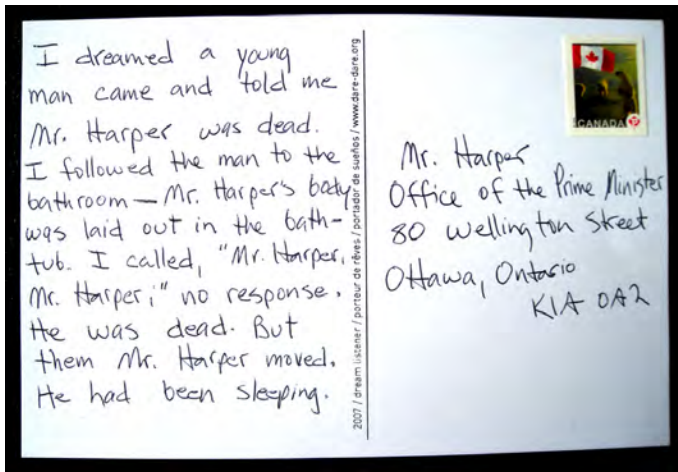 I dreamed a young
man came and told me
Mr. Harper was dead.
I followed the man to the
bathroom — Mr. Harper's body
was laid out in the bath-
tub. I called, "Mr. Harper,
Mr. Harper;" no response.
He was dead. But
them Mr. Harper moved.
He had been sleeping.
2007 / dream listener / porteur de rêves / portador de sueños / www.dare-dare.org
CANADA P
Mr. Harper
Office of the Prime Minister
80 Wellington Street
Ottawa, Ontario
K1A 0A2